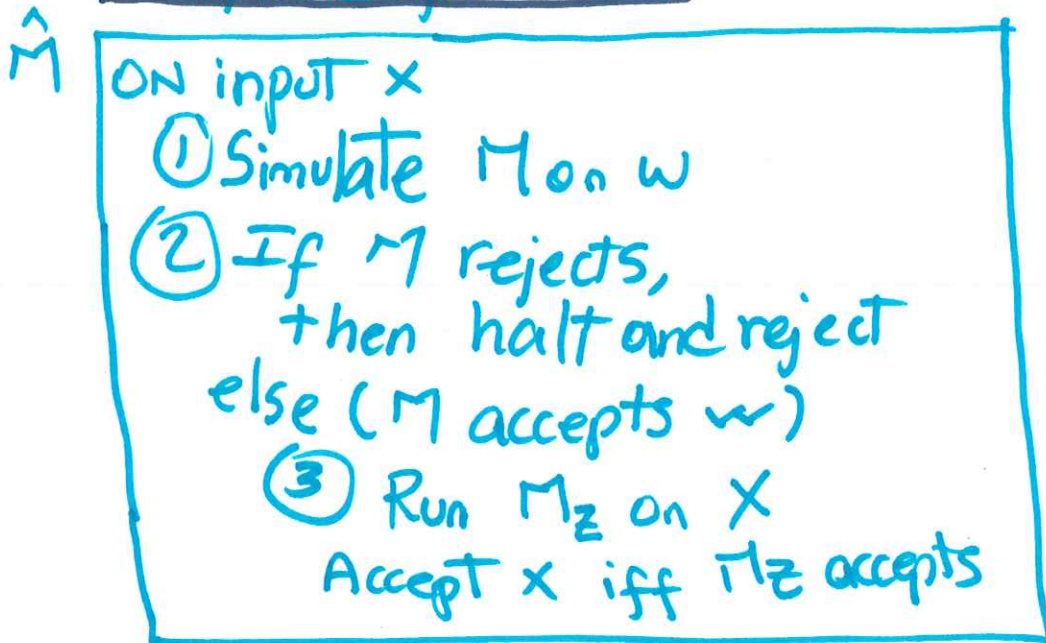 M̂
ON input x
① Simulate M on w
② If M rejects,
then halt and reject
else (M accepts w)
③ Run M_z on X
Accept x iff M_z accepts